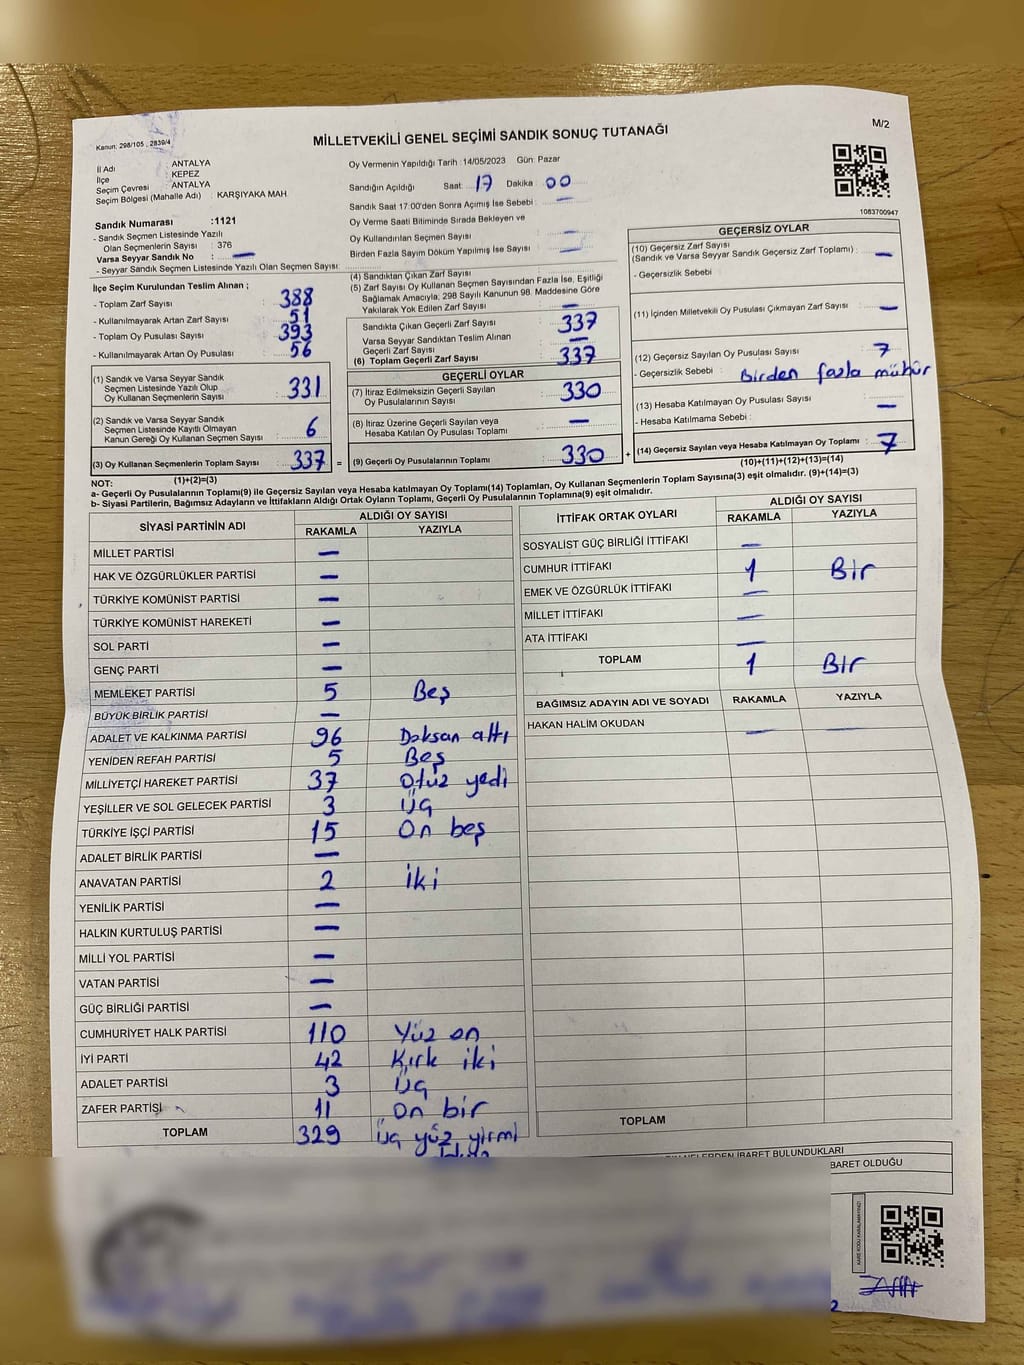 Kanun: 298/105 , 2839/4
MİLLETVEKİLİ GENEL SEÇİMİ SANDIK SONUÇ TUTANAĞI
M/2
İl Adı : ANTALYA
İlçe : KEPEZ
Seçim Çevresi : ANTALYA
Seçim Bölgesi (Mahalle Adı) : KARŞIYAKA MAH
Oy Vermenin Yapıldığı Tarih : 14/05/2023 Gün: Pazar
Sandığın Açıldığı Saat: 17 Dakika: 00
Sandık Saat 17:00'den Sonra Açımış İse Sebebi : —
Oy Verme Saati Bitiminde Sırada Bekleyen ve
Oy Kullandırılan Seçmen Sayısı : —
Birden Fazla Sayım Döküm Yapılmış İse Sayısı : —
1083700947
Sandık Numarası :1121
- Sandık Seçmen Listesinde Yazılı
Olan Seçmenlerin Sayısı : 376
Varsa Seyyar Sandık No : —
- Seyyar Sandık Seçmen Listesinde Yazılı Olan Seçmen Sayısı:
İlçe Seçim Kurulundan Teslim Alınan ;
- Toplam Zarf Sayısı : 388
- Kullanılmayarak Artan Zarf Sayısı : 51
- Toplam Oy Pusulası Sayısı : 393
- Kullanılmayarak Artan Oy Pusulası : 56
(1) Sandık ve Varsa Seyyar Sandık
Seçmen Listesinde Yazılı Olup
Oy Kullanan Seçmenlerin Sayısı : 331
(2) Sandık ve Varsa Seyyar Sandık
Seçmen Listesinde Kayıtlı Olmayan
Kanun Gereği Oy Kullanan Seçmen Sayısı : 6
(3) Oy Kullanan Seçmenlerin Toplam Sayısı : 337 =
(1)+(2)=(3)
(4) Sandıktan Çıkan Zarf Sayısı :
(5) Zarf Sayısı Oy Kullanan Seçmen Sayısından Fazla İse, Eşitliği
Sağlamak Amacıyla, 298 Sayılı Kanunun 98. Maddesine Göre
Yakılarak Yok Edilen Zarf Sayısı : —
Sandıkta Çıkan Geçerli Zarf Sayısı : 337
Varsa Seyyar Sandıktan Teslim Alınan
Geçerli Zarf Sayısı : —
(6) Toplam Geçerli Zarf Sayısı : 337
GEÇERLİ OYLAR
(7) İtiraz Edilmeksizin Geçerli Sayılan
Oy Pusulalarının Sayısı : 330
(8) İtiraz Üzerine Geçerli Sayılan veya
Hesaba Katılan Oy Pusulası Toplamı : —
(9) Geçerli Oy Pusulalarının Toplamı : 330 +
GEÇERSİZ OYLAR
(10) Geçersiz Zarf Sayısı
(Sandık ve Varsa Seyyar Sandık Geçersiz Zarf Toplamı) : —
- Geçersizlik Sebebi :
(11) İçinden Milletvekili Oy Pusulası Çıkmayan Zarf Sayısı : —
(12) Geçersiz Sayılan Oy Pusulası Sayısı : 7
- Geçersizlik Sebebi : Birden fazla mühür
(13) Hesaba Katılmayan Oy Pusulası Sayısı : —
- Hesaba Katılmama Sebebi :
(14) Geçersiz Sayılan veya Hesaba Katılmayan Oy Toplamı : 7
(10)+(11)+(12)+(13)=(14)
NOT:
a- Geçerli Oy Pusulalarının Toplamı(9) ile Geçersiz Sayılan veya Hesaba Katılmayan Oy Toplamı(14) Toplamları, Oy Kullanan Seçmenlerin Toplam Sayısına(3) eşit olmalıdır. (9)+(14)=(3)
b- Siyasi Partilerin, Bağımsız Adayların ve İttifakların Aldığı Oyların Toplamı, Geçerli Oy Pusulalarının Toplamına(9) eşit olmalıdır.
SİYASİ PARTİNİN ADI ALDIĞI OY SAYISI
RAKAMLA YAZIYLA
MİLLET PARTİSİ —
HAK VE ÖZGÜRLÜKLER PARTİSİ —
TÜRKİYE KOMÜNİST PARTİSİ —
TÜRKİYE KOMÜNİST HAREKETİ —
SOL PARTİ —
GENÇ PARTİ —
MEMLEKET PARTİSİ 5 Beş
BÜYÜK BİRLİK PARTİSİ —
ADALET VE KALKINMA PARTİSİ 96 Doksan altı
YENİDEN REFAH PARTİSİ 5 Beş
MİLLİYETÇİ HAREKET PARTİSİ 37 Otuz yedi
YEŞİLLER VE SOL GELECEK PARTİSİ 3 Üç
TÜRKİYE İŞÇİ PARTİSİ 15 On beş
ADALET BİRLİK PARTİSİ —
ANAVATAN PARTİSİ 2 İki
YENİLİK PARTİSİ —
HALKIN KURTULUŞ PARTİSİ —
MİLLİ YOL PARTİSİ —
VATAN PARTİSİ —
GÜÇ BİRLİĞİ PARTİSİ —
CUMHURİYET HALK PARTİSİ 110 Yüz on
İYİ PARTİ 42 Kırk iki
ADALET PARTİSİ 3 Üç
ZAFER PARTİSİ 11 On bir
TOPLAM 329 Üç yüz yirmi
İTTİFAK ORTAK OYLARI ALDIĞI OY SAYISI
RAKAMLA YAZIYLA
SOSYALİST GÜÇ BİRLİĞİ İTTİFAKI —
CUMHUR İTTİFAKI 1 Bir
EMEK VE ÖZGÜRLÜK İTTİFAKI —
MİLLET İTTİFAKI —
ATA İTTİFAKI —
TOPLAM 1 Bir
BAĞIMSIZ ADAYIN ADI VE SOYADI RAKAMLA YAZIYLA
HAKAN HALİM OKUDAN — —
TOPLAM
NELERDEN İBARET BULUNDUKLARI
BARET OLDUĞU